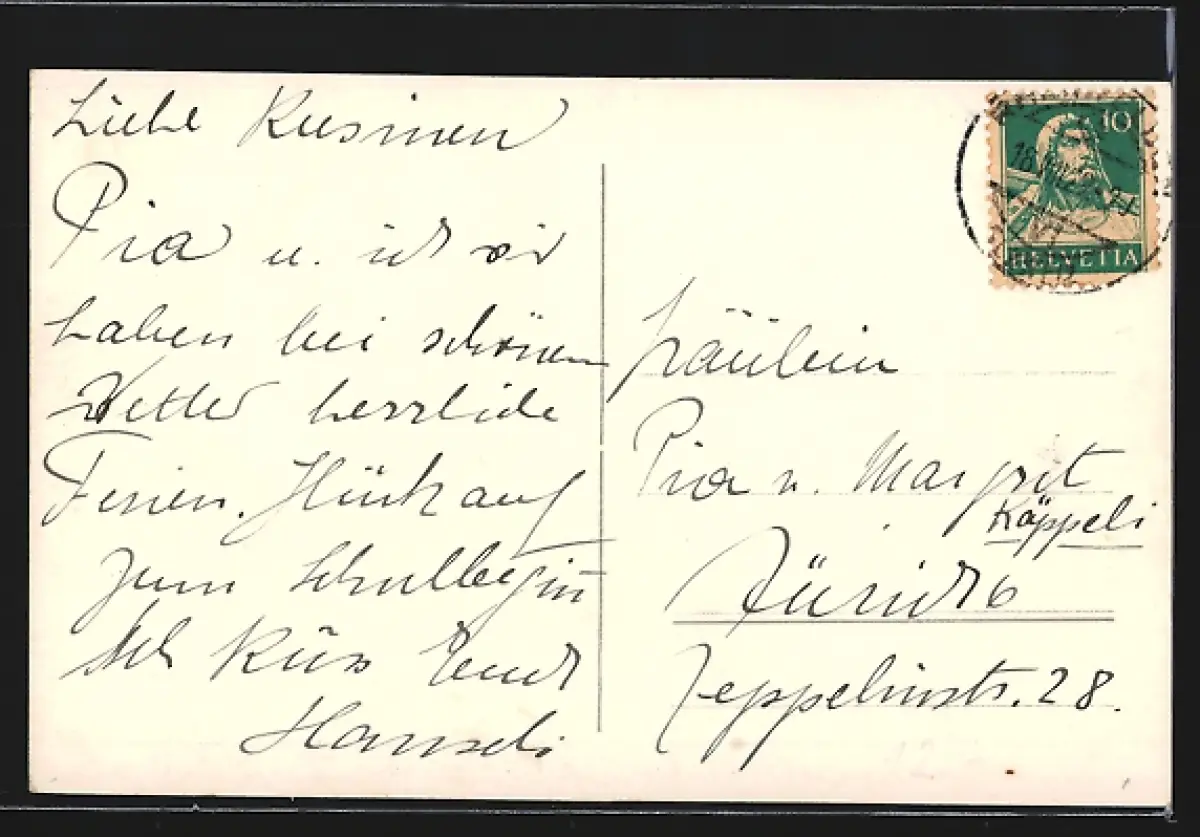 Liebe Kusinen
Pia u. ich wir
haben bei schönem
Wetter herrliche
Ferien. Glück auf
zum Schulbeginn
Kuss Euch
Hansli
Fräulein
Pia u. Margrit
Käppeli
Zürich 6
Zeppelinstr. 28.
10
18
HELVETIA